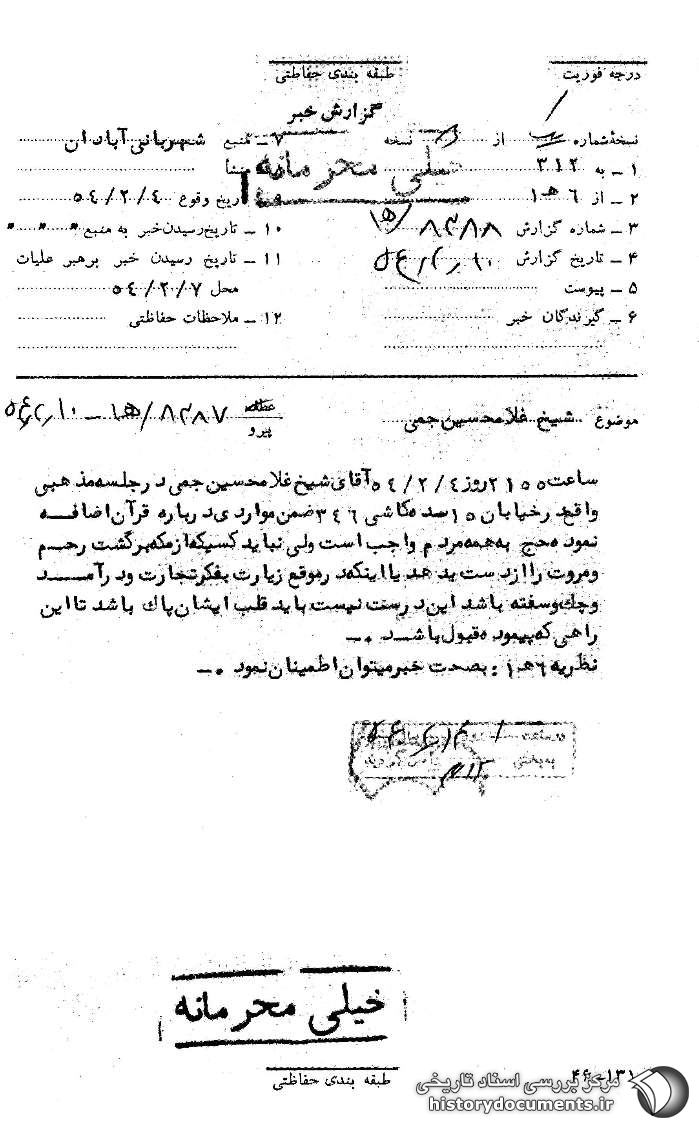 درجه فوریت
طبقه بندی حفاظتی
گزارش خبر
نسخهٔ شماره از نسخه
۱ ـ به ۳۱۲
۲ ـ از ۶ه۱
۳ ـ شماره گزارش ۸۳۸۸/ه۱
۴ ـ تاریخ گزارش ۵۴/۲/۱۰
۵ ـ پیوست
۶ ـ گیرندگان خبر
۷ ـ منبع شهربانی آبادان
خیلی محرمانه
تاریخ وقوع ۵۴/۲/۴
۱۰ ـ تاریخ رسیدن خبر به منبع " " "
۱۱ ـ تاریخ رسیدن خبر برهبر عملیات
محل ۵۴/۲/۷
۱۲ ـ ملاحظات حفاظتی
موضوع شیخ غلامحسین جمی
عطف
پیرو
۸۳۸۷/ه۱ – ۵۴/۲/۱۰
ساعت ۲۱۵۵ روز ۵۴/۲/۴ آقای شیخ غلامحسین جمی در جلسه مذهبی
واقع در خیابان ۱۵ سده کاشی ۳۴۶ ضمن مواردی درباره قرآن اضافه
نموده حج به همه مردم واجب است ولی نباید کسیکه از مکه برگشت رحم
و مروت را از دست بدهد یا اینکه در موقع زیارت بفکر تجارت و درآمد
و چک و سفته باشد این درست نیست باید قلب ایشان پاک باشد تا این
راهی که پیموده قبول باشد .–
نظریه ۶ه۱ : بصحت خبر میتوان اطمینان نمود .–
خیلی محرمانه
طبقه بندی حفاظتی
۱۳۱–۴۶
مرکز بررسی اسناد تاریخی
historydocuments.ir